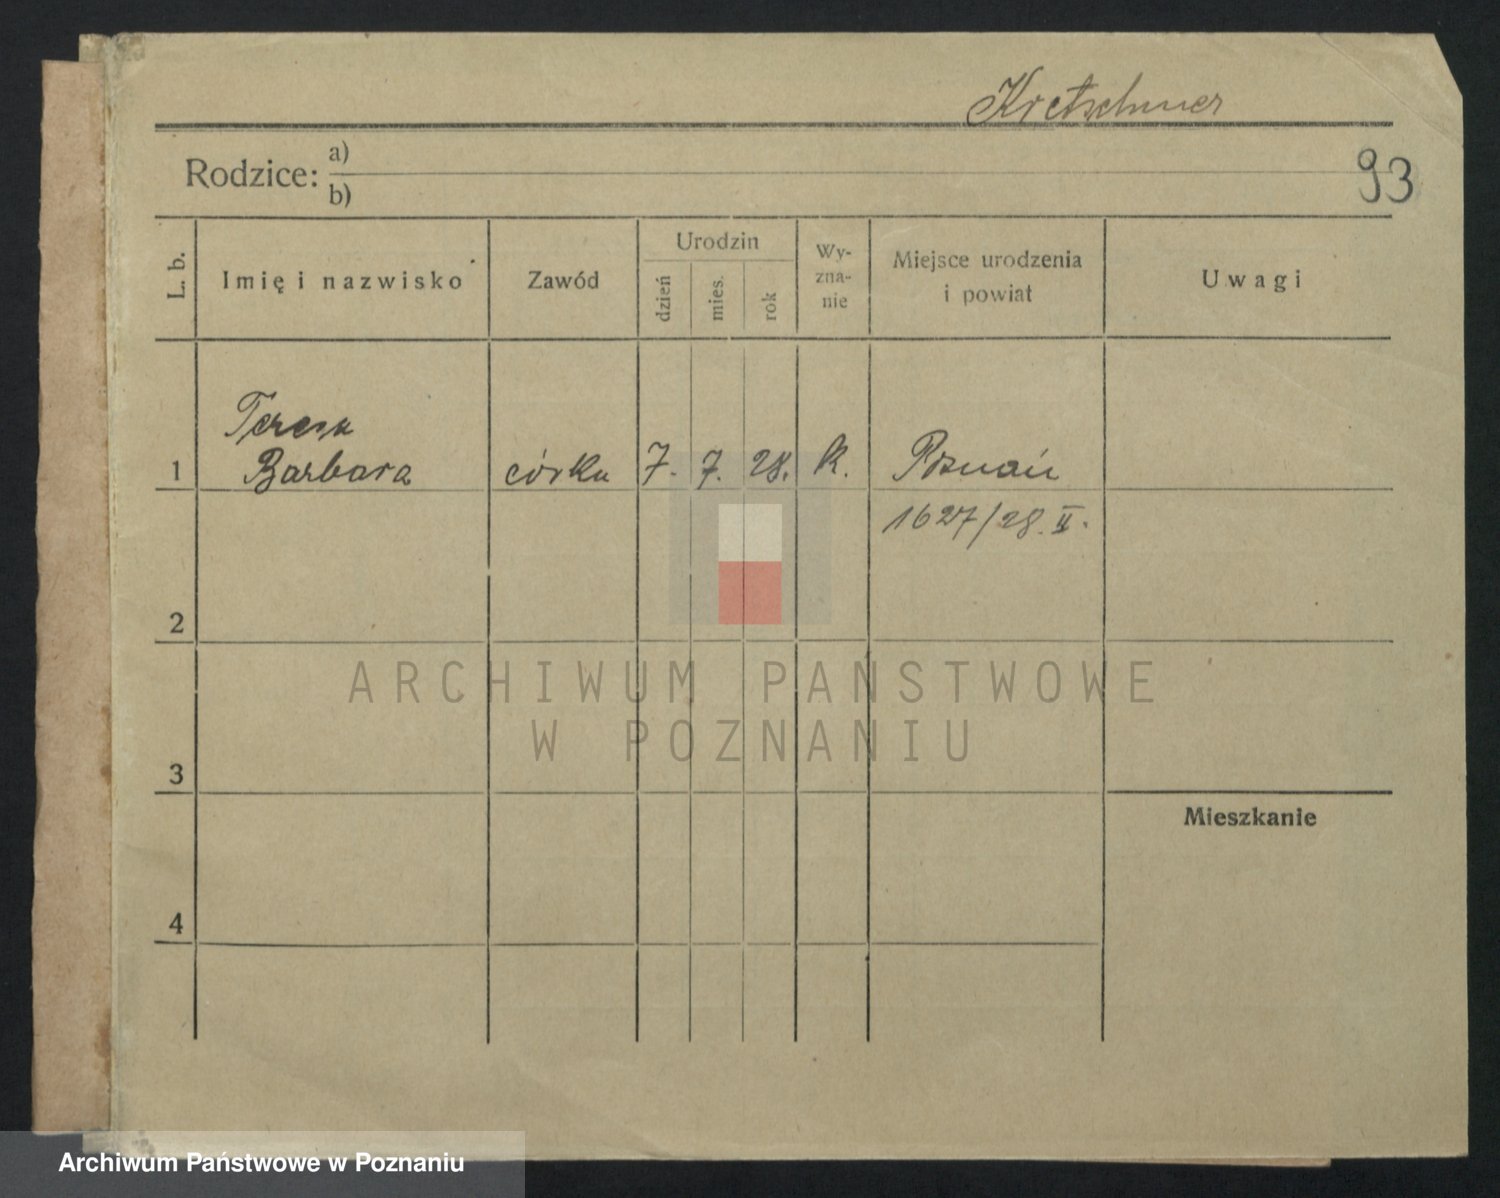 Kretschmer
93
Rodzice: a)
b)
L. b.
Imię i nazwisko
Zawód
Urodzin
dzień
mies.
rok
Wy-
zna-
nie
Miejsce urodzenia
i powiat
Uwagi
Teresa
1 Barbara córka 7. 7. 28. k. Poznań
1627/28. II.
2
3
Mieszkanie
4
ARCHIWUM PAŃSTWOWE
W POZNANIU
Archiwum Państwowe w Poznaniu